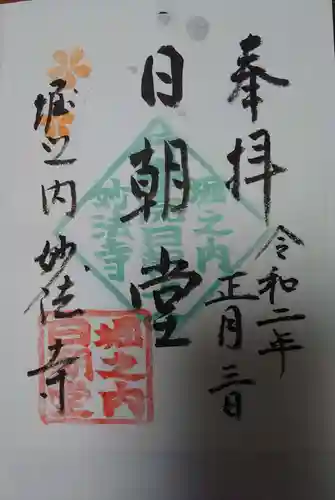 奉拝
令和二年
正月三日
日朝堂
堀之内妙法寺
堀之内
妙法寺
堀之内
日朝堂